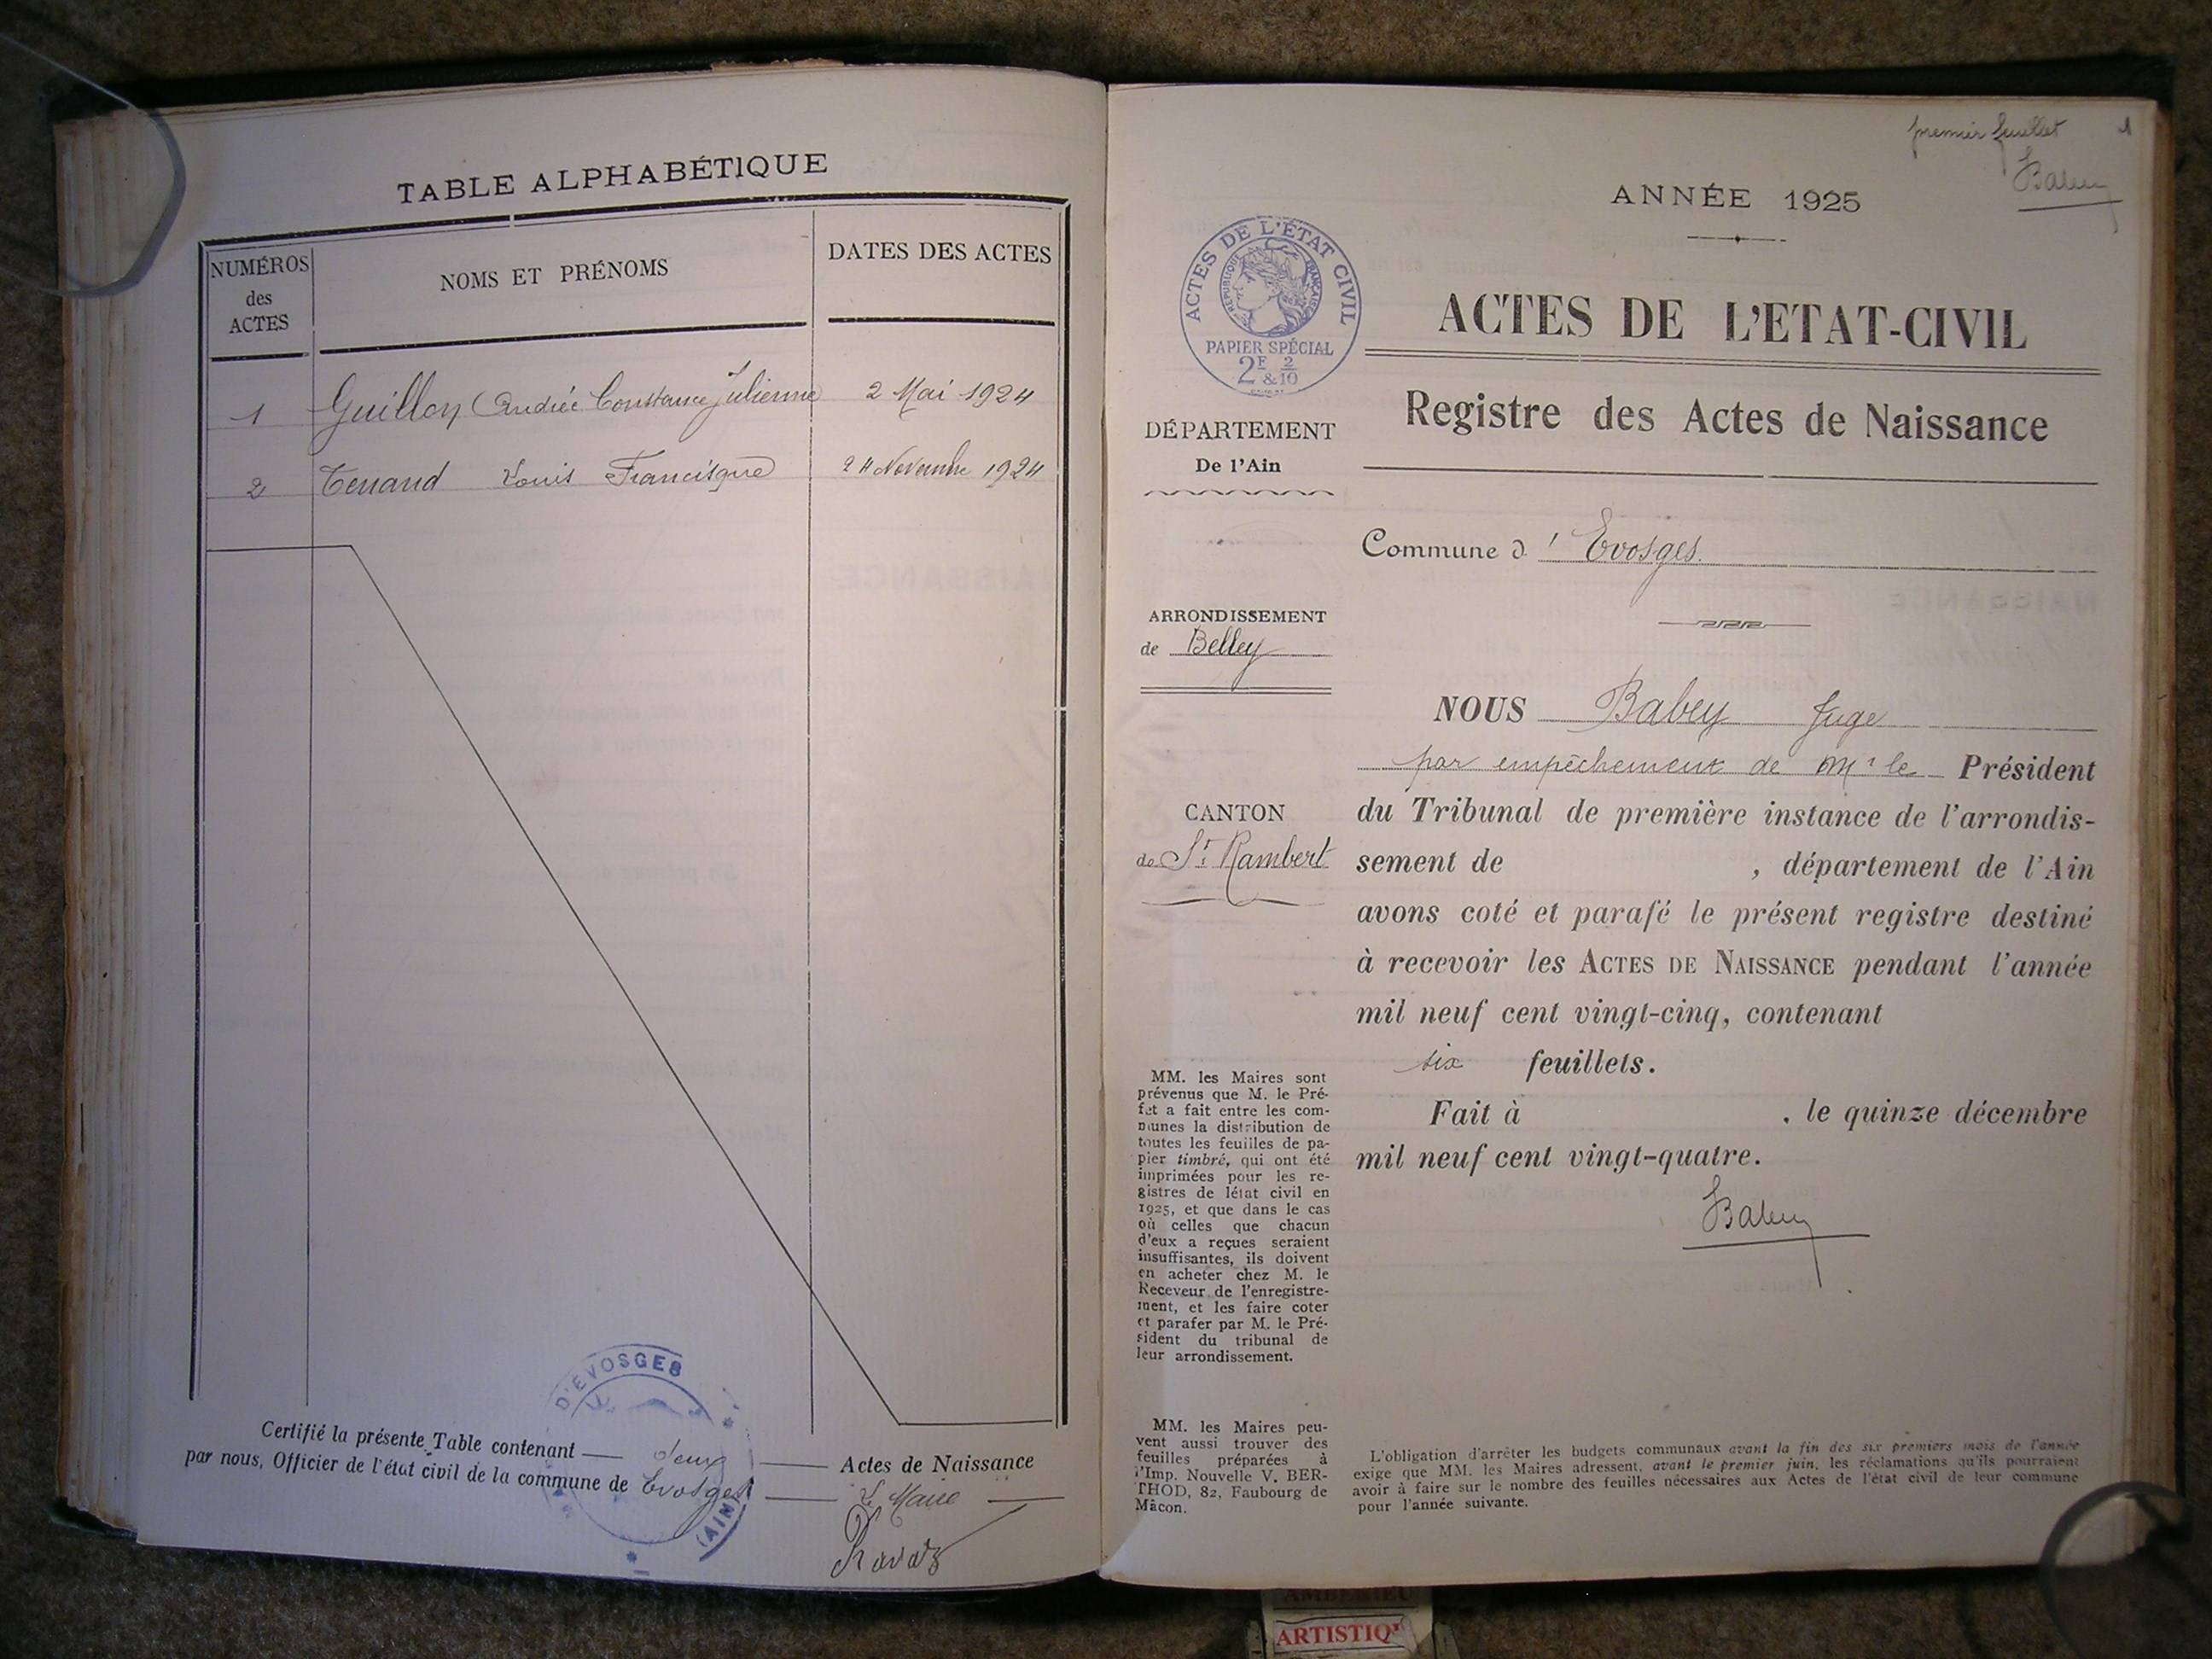 TABLE ALPHABÉTIQUE
NUMÉROS
des
ACTES
NOMS ET PRÉNOMS
DATES DES ACTES
1 Guillon Andrée Constance Julienne 2 Mai 1924
2 Tenand Louis Francisque 24 Novembre 1924
Certifié la présente Table contenant deux Actes de Naissance
par nous, Officier de l'état civil de la commune de Evosges Le Maire
Ravaz
D'EVOSGES
(AIN)
premier feuillet 1
Babey
ANNÉE 1925
ACTES DE L'ÉTAT CIVIL
RÉPUBLIQUE FRANÇAISE
PAPIER SPÉCIAL
2F & 2/10
ACTES DE L'ETAT-CIVIL
Registre des Actes de Naissance
DÉPARTEMENT
De l'Ain
Commune d' Evosges.
ARRONDISSEMENT
de Belley
CANTON
de St Rambert
NOUS Babey Juge
par empêchement de Mr le Président
du Tribunal de première instance de l'arrondis-
sement de , département de l'Ain
avons coté et parafé le présent registre destiné
à recevoir les ACTES DE NAISSANCE pendant l'année
mil neuf cent vingt-cinq, contenant
six feuillets.
Fait à , le quinze décembre
mil neuf cent vingt-quatre.
Babey
MM. les Maires sont
prévenus que M. le Pré-
fet a fait entre les com-
munes la distribution de
toutes les feuilles de pa-
pier timbré, qui ont été
imprimées pour les re-
gistres de létat civil en
1925, et que dans le cas
où celles que chacun
d'eux a reçues seraient
insuffisantes, ils doivent
en acheter chez M. le
Receveur de l'enregistre-
ment, et les faire coter
et parafer par M. le Pré-
sident du tribunal de
leur arrondissement.
MM. les Maires peu-
vent aussi trouver des
feuilles préparées à
l'Imp. Nouvelle V. BER-
THOD, 82, Faubourg de
Mâcon.
L'obligation d'arrêter les budgets communaux avant la fin des six premiers mois de l'année
exige que MM. les Maires adressent, avant le premier juin, les réclamations qu'ils pourraient
avoir à faire sur le nombre des feuilles nécessaires aux Actes de l'état civil de leur commune
pour l'année suivante.
AMBÉRIEU
ARTISTIQ